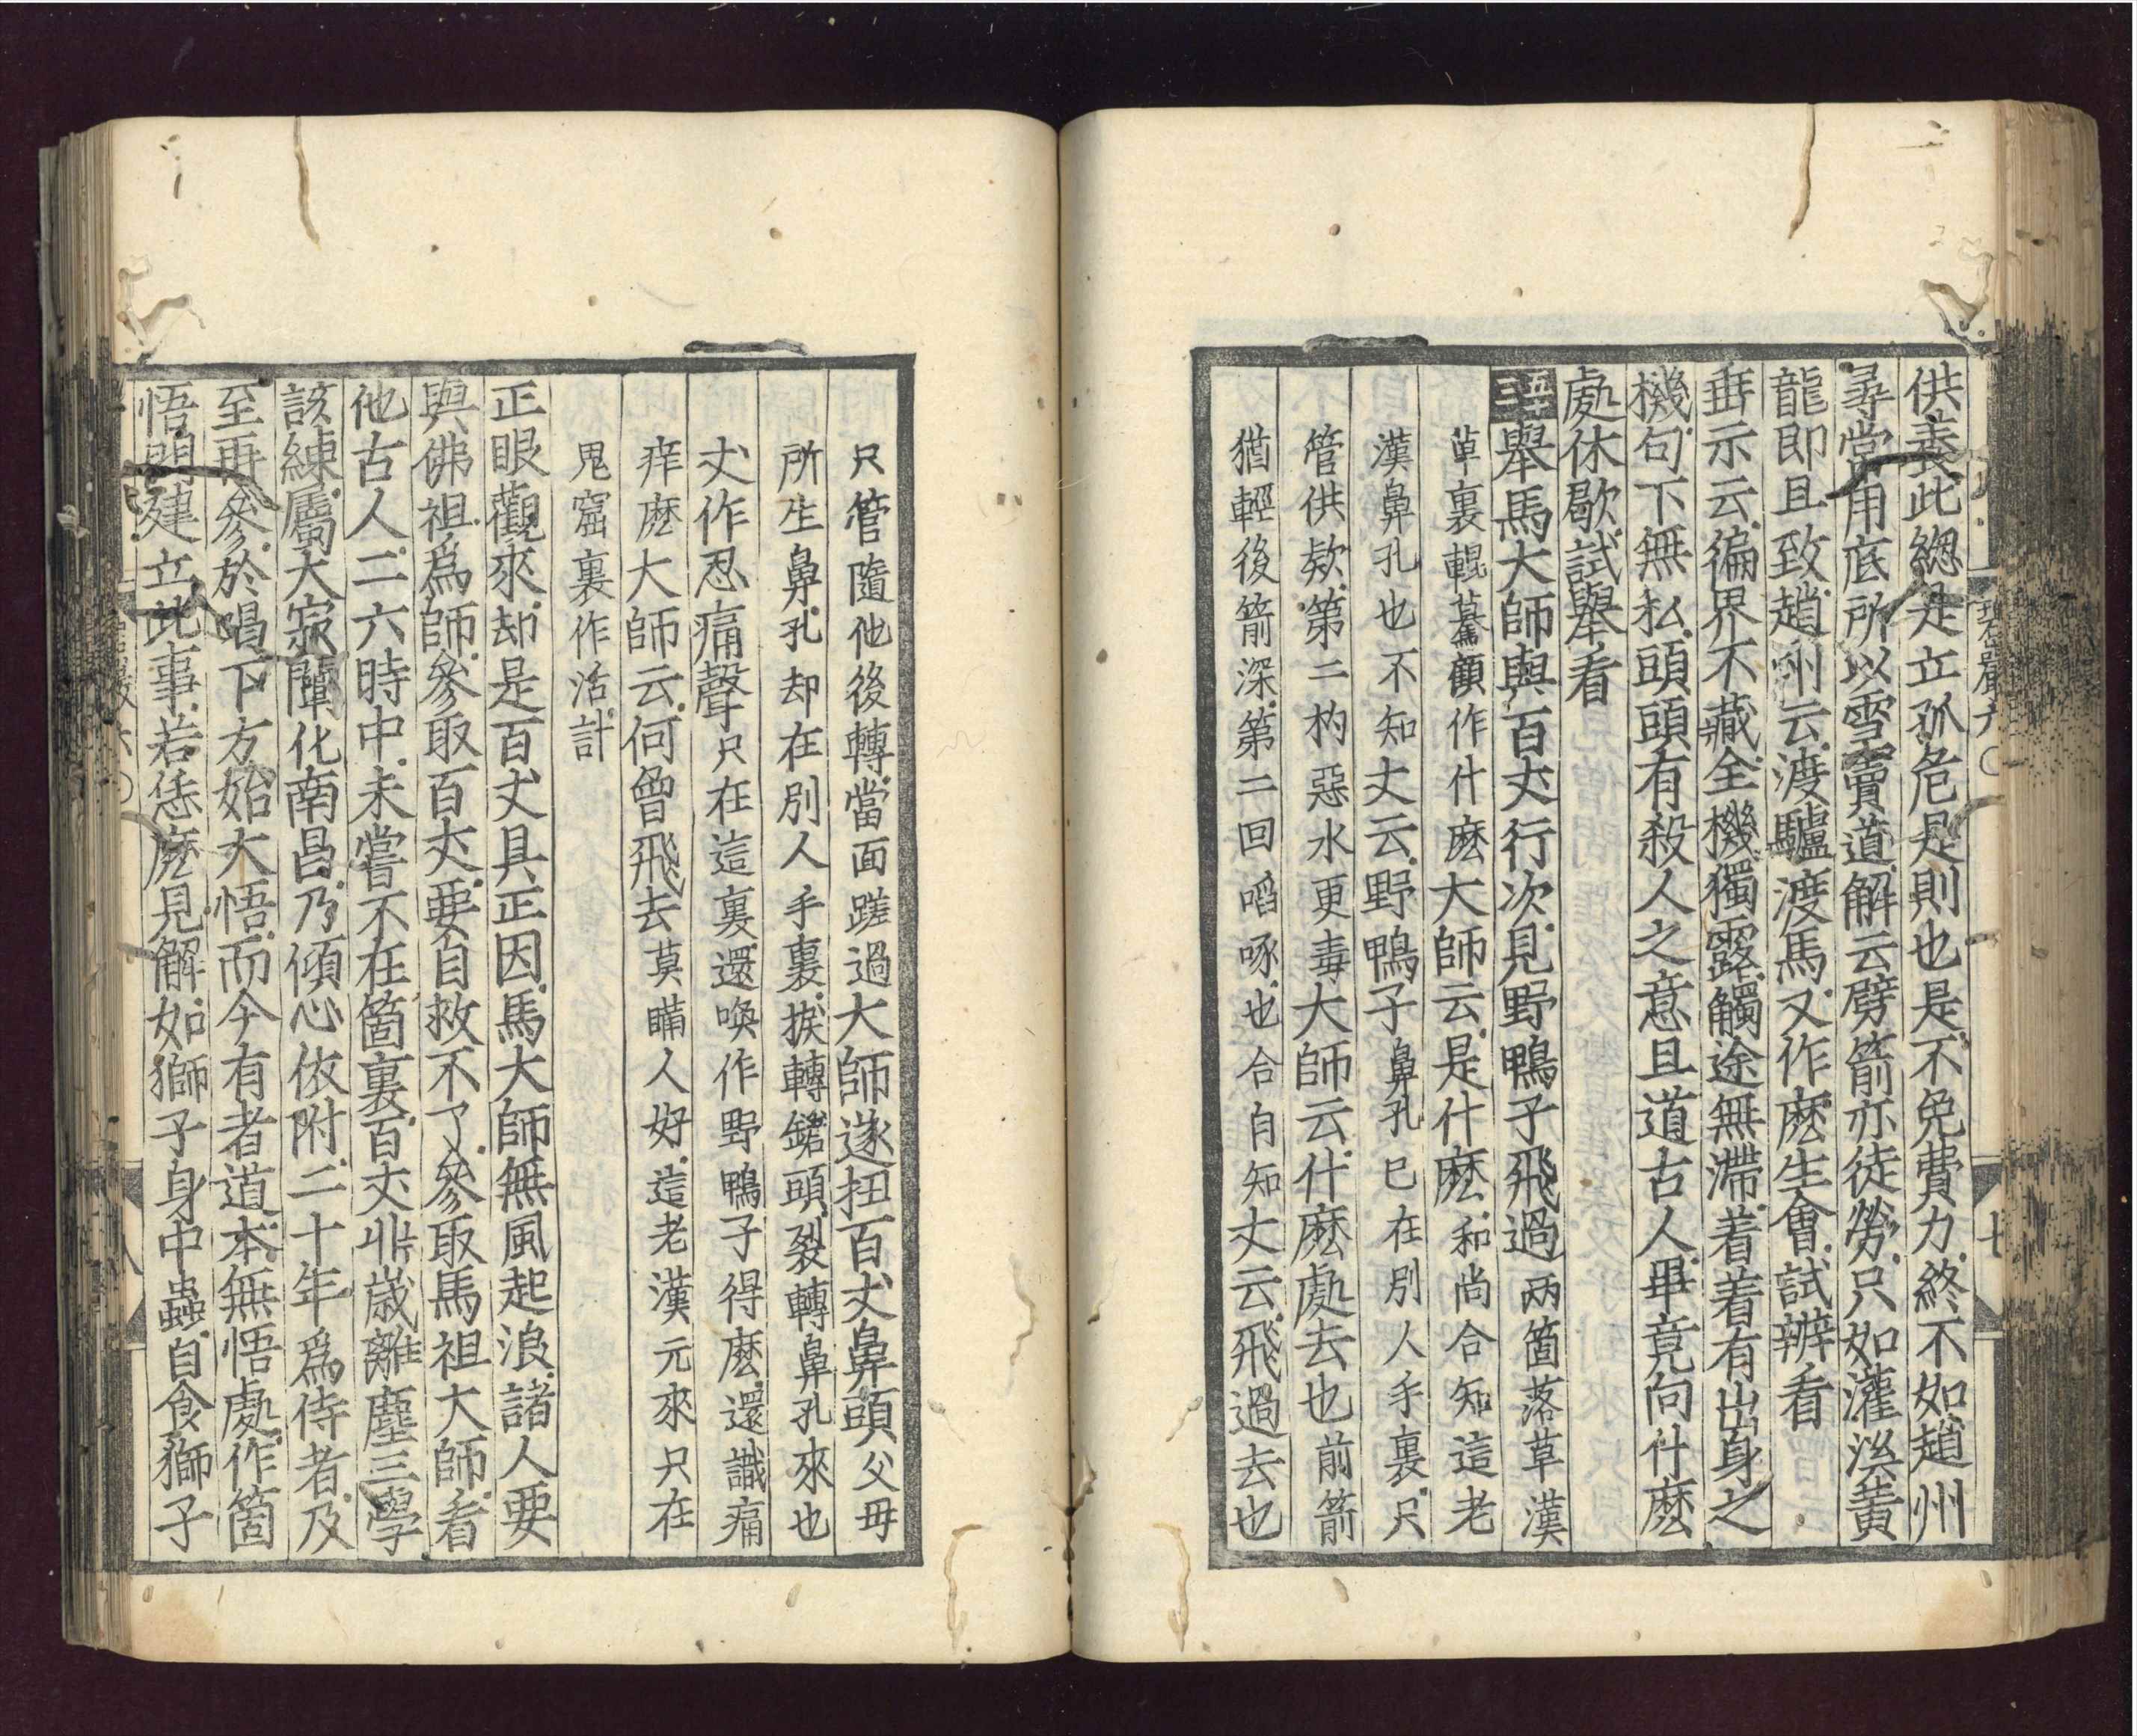 供養此緫是立孤危是則也是不免費力終不如趙州
尋常用底所以雪竇道解云劈箭亦徒勞只如灌溪黃
龍即且致趙州云渡驢渡馬又作麽生會試辨看
垂示云徧界不藏全機獨露觸途無滯着着有出身之
機句下無私頭頭有殺人之意且道古人畢竟向什麽
處休歇試舉看
五十三 舉馬大師與百丈行次見野鴨子飛過兩箇落草漢
草裏輥驀顧作什麽大師云是什麽和尚合知這老
漢鼻孔也不知丈云野鴨子鼻孔已在別人手裏只
管供欵第二杓惡水更毒大師云什麽處去也前箭
猶輕後箭深第二回啗啄也合自知丈云飛過去也
碧岩六 七
只管隨他後轉當面蹉過大師遂扭百丈鼻頭父母
所生鼻孔却在別人手裏捩轉鎗頭裂轉鼻孔來也
丈作忍痛聲只在這裏還喚作野鴨子得麽還識痛
痒麽大師云何曾飛去莫瞞人好這老漢元來只在
鬼窟裏作活計
正眼觀來却是百丈具正因馬大師無風起浪諸人要
與佛祖爲師參取百丈要自救不了參取馬祖大師看
他古人二六時中未嘗不在箇裏百丈丱歲離塵三學
該練屬大寂闡化南昌乃傾心依附二十年爲侍者及
至再參於喝下方始大悟而今有者道本無悟處作箇
悟門建立此事若恁麽見解如獅子身中蟲自食獅子